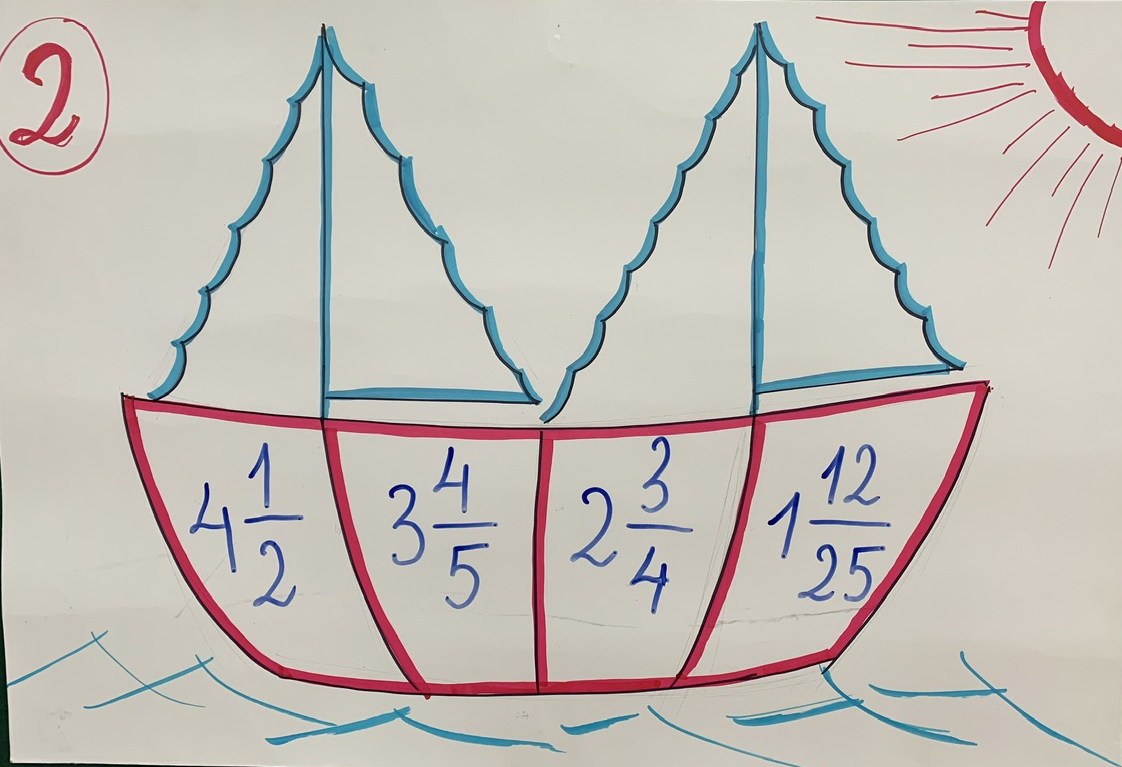 2
4 1/2
3 4/5
2 3/4
1 12/25